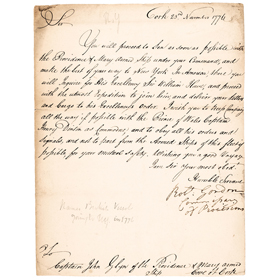 Cork 25th November 1776
Sir
You will proceed to Sea as soon as possible with
the Providence & Mary armed Ship under your Command, and
make the best of your way to New York in America, where you
will Inquire for His Excellency Sir William Howe, and proceed
with the utmost Expedition to join him, and deliver your letters
and Cargo to his Excellency's Order. I wish you to keep Company
all the way if possible with the Prince of Wales Captain
as Commodore, and to obey all his orders and
Signals, and not to part from the Armed Ships of this fleet if
possible, for your mutual Safety. Wishing you a good Voyage
I am Sir your most Obed.
Humble Servant
Robt. Gordon
Commissary
of Provisions
To
Captain John Glynn of the Providence & Mary armed
Ship Cove of Cork